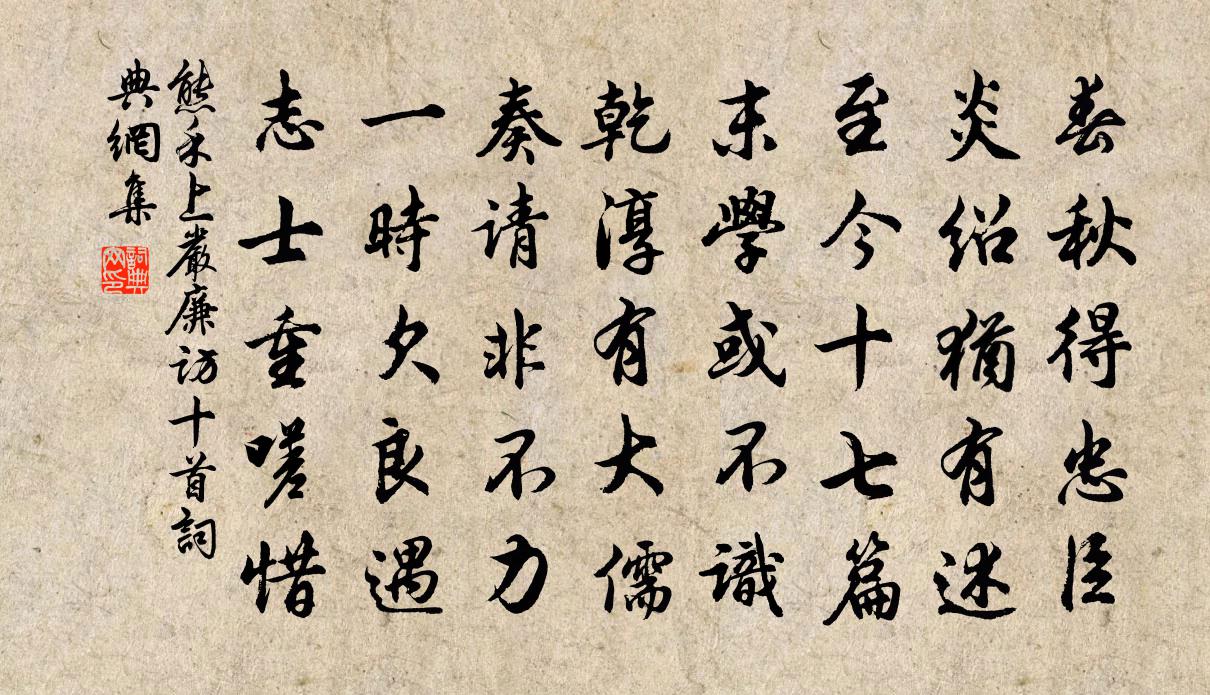 春秋得忠臣
炎紹猶有述
至今十七篇
末學或不識
乾淳有大儒
奏请非不力
一時欠良遇
志士重嗟惜
熊禾上嚴廉访十首詞
典網集
詞典